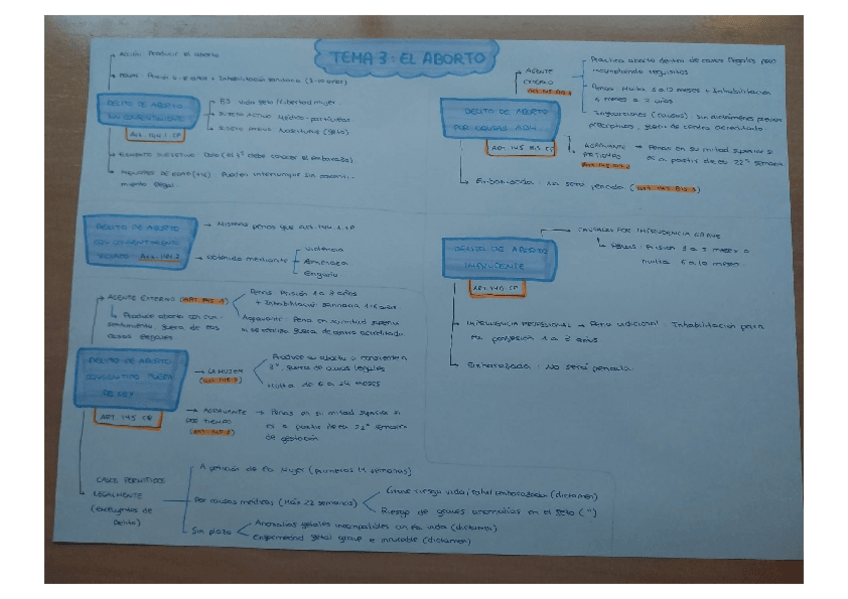 TEMA 3: EL ABORTO
Acción: Producir el aborto
Penas: Prisión 4-8 años + Inhabilitación sanitaria (3-10 años)
DELITO DE ABORTO
SIN CONSENTIMIENTO
Art. 144.1 CP
BJ: Vida feto / libertad mujer.
Sujeto activo: Médico-particular
Sujeto pasivo: Nasciturus (feto)
Elemento subjetivo: Dolo (el debe conocer el embarazo)
Pueden interrumpir sin consenti-
miento legal.
AGENTE
EXTERNO
Art. 145 Bis.1
Practica aborto dentro de casos legales pero
incumpliendo requisitos
Penas: Multa 6 a 12 meses + Inhabilitación
6 meses a 2 años
(casos): Sin dictámenes previos
preceptivos, fuera de centro acreditado.
DELITO DE ABORTO
POR CAUSAS
Art. 145 Bis CP
AGRAVANTE
Art. 145 Bis.2
Penas en su mitad superior si
es a partir de la 22ª semana
Embarazada: No será penada (Art. 145 Bis.3)
DELITO DE ABORTO
CON CONSENTIMIENTO
VICIADO Art. 144.2
Mismas penas que art. 144.1 CP
Obtenido mediante
Violencia
Amenaza
Engaño
DELITO DE ABORTO
IMPRUDENTE
Art. 146 CP
CAUSADO POR IMPRUDENCIA GRAVE
Penas: Prisión 3 a 5 meses o
multa 6 a 10 meses
IMPRUDENCIA PROFESIONAL → Pena adicional: Inhabilitación para
la profesión 1 a 3 años
Embarazada: No será penada.
AGENTE EXTERNO (Art. 145.1)
Produce aborto con con-
sentimiento, fuera de los
casos legales
Penas: Prisión 1 a 3 años
+ Inhabilitació sanitaria 1-6 años
Agravante: Pena en su mitad superior
si se realiza fuera de centro acreditado
DELITO DE ABORTO
CONSENTIDO FUERA
DE LEY
ART. 145 CP
LA MUJER
(Art. 145.2)
Produce su aborto o consiente a
3º, fuera de casos legales
Multa de 6 a 24 meses
AGRAVANTE
DE TIEMPO
(Art. 145.3)
Penas en su mitad superior si
es a partir de la 22ª semana
de gestación
CASOS PERMITIDOS
LEGALMENTE
(excluyentes de
Delito)
A petición de la Mujer (primeras 14 semanas)
Por causas médicas (Máx 22 semanas)
Grave riesgo vida/salud embarazada (dictamen)
Riesgo de graves anomalías en el feto (")
Sin plazo
Anomalías fetales incompatibles con la vida (dictamen)
Enfermedad fetal grave e incurable (dictamen)